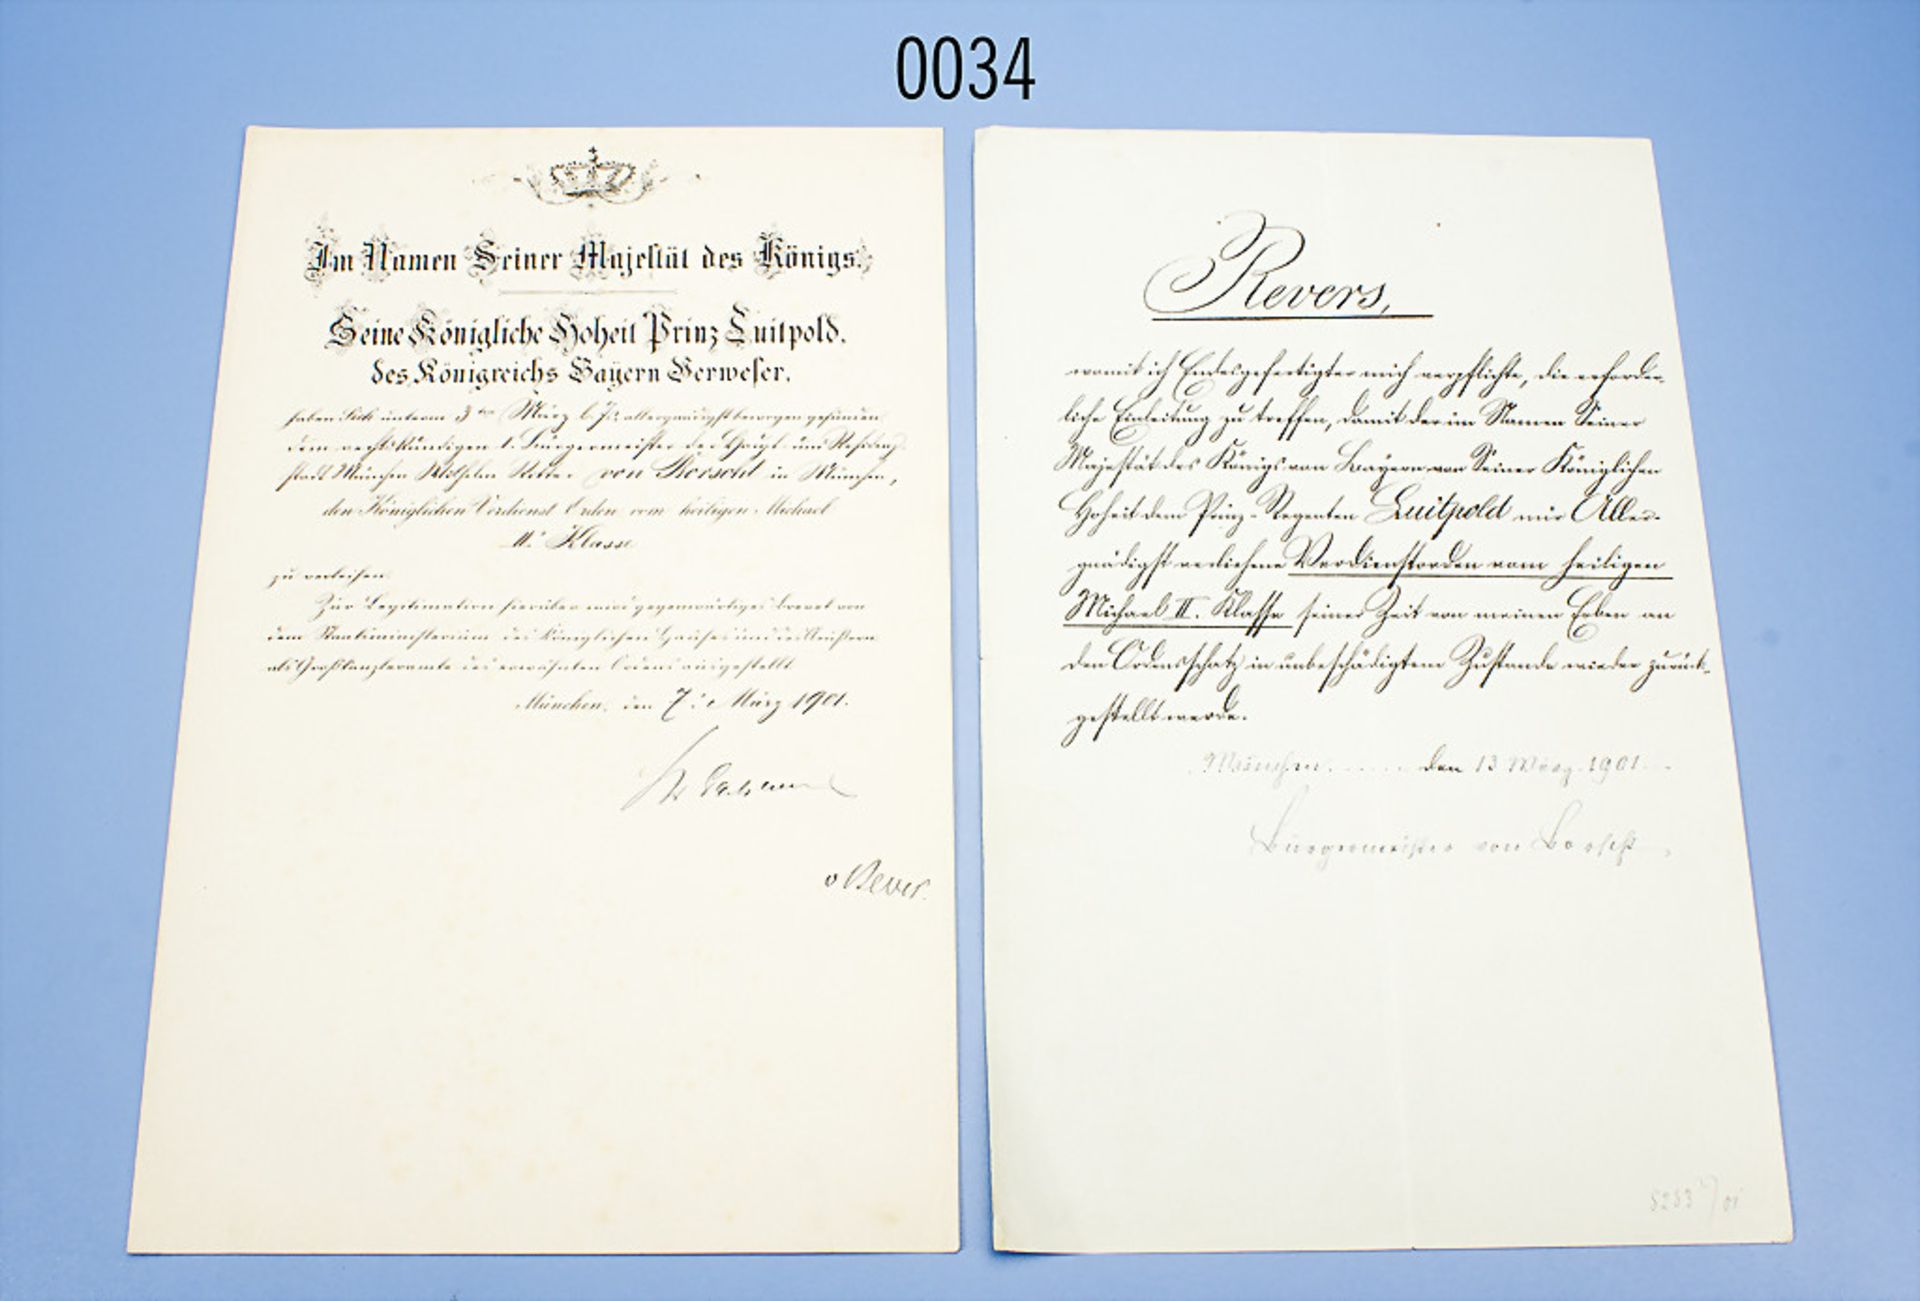 0034
Im Namen Seiner Majestät des Königs.
Seine Königliche Hoheit Prinz Luitpold,
des Königreichs Bayern Verweser,
haben Sich unterm 3ten März l. Js. allergnädigst bewogen gefunden
dem rechtskundigen 1. Bürgermeister der Haupt- und Residenz-
stadt München Wilhelm Ritter von Borscht in München,
den Königlichen Verdienst Orden vom heiligen Michael
II. Klasse
zu verleihen.
Zur Legitimation hierüber wird gegenwärtiges Brevet von
dem Staatsministerium des Königlichen Hauses und des Äußern
als Großkanzleramte des erwähnten Ordens ausgestellt.
München, den 7. März 1901.
Revers,
womit ich Endesgefertigter mich verpflichte, die erforder-
liche Einleitung zu treffen, damit der im Namen Seiner
Majestät des Königs von Bayern von Seiner Königlichen
Hoheit dem Prinz-Regenten Luitpold mir Aller-
gnädigst verliehene Verdienstorden vom heiligen
Michael II. Klasse seiner Zeit von meinen Erben an
den Ordensschatz in unbeschädigtem Zustande wieder zurück-
gestellt werde.
München, den 13 März 1901
Bürgermeister von Borscht